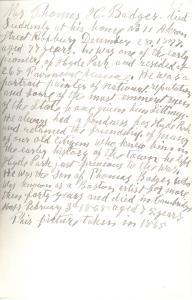 Mr Thomas H. Badger died
Suddenly at his home No 11 Akron
Street Roxbury December 28, 1898.
aged 77 years, he was one of the early
pioneers of Hyde Park and resided at
Fairmount Avenue. He was a
portrait painter of national reputation
and some of the most eminent men
of the State have given him sittings.
He always had a fondness for Hyde Park
and retained the friendship of many
of our old Citizens who knew him in
the early history of the town. he left
Hyde Park just previous to the war.
He was the Son of Thomas Badger who
was known as a Boston artist for more
than forty years and died in Cambridge
Mass February 3d 1868 aged 75 years.
This picture taken in 1865